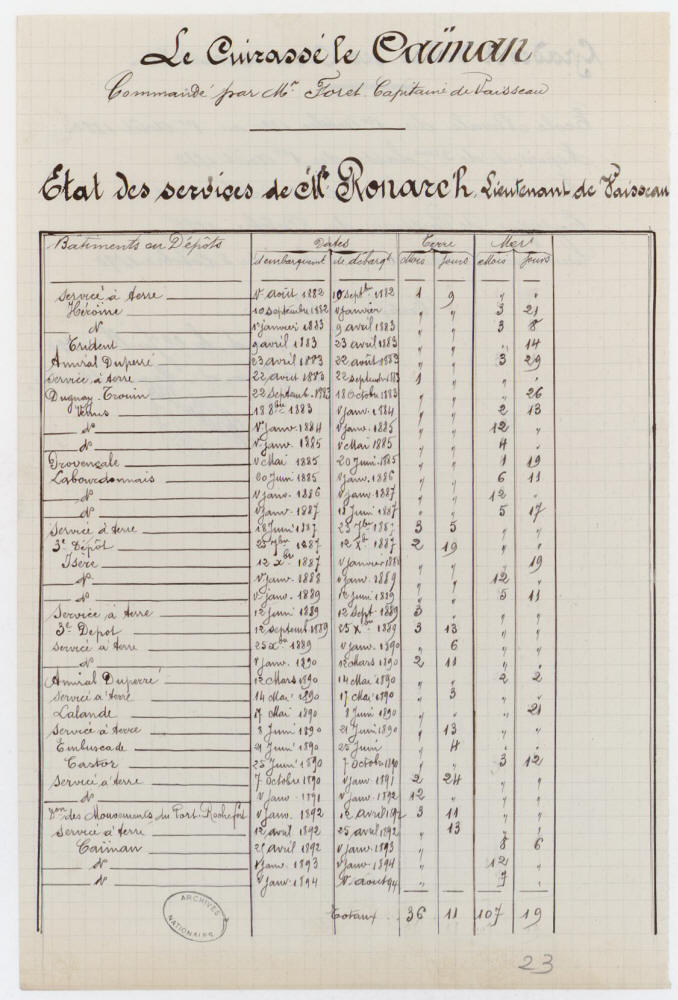 Le Cuirassé le Caïman
Commandé par Mr Foret Capitaine de Vaisseau
Etat des services de Mr Ronarc'h Lieutenant de Vaisseau
Bâtiments ou Dépôts Dates Terre Mer
d'embarquent de débarqt Mois Jours Mois Jours
Service à terre 1er août 1882 10 septbre 1882 1 9 " "
Héroïne 10 septembre 1882 1er janvier " " 3 21
do 1er janvier 1883 9 avril 1883 " " 3 8
Trident 9 avril 1883 23 avril 1883 " " " 14
Amiral Duperré 23 avril 1883 22 août 1883 " " 3 29
Service à terre 22 août 1883 22 septembre 1883 1 " " "
Duguay-Trouin 22 Septemb. 1883 18 Octobre 1883 " " " 26
Vénus 18 8bre 1883 1er janv. 1884 " " 2 13
do 1er janv. 1884 1er janv. 1885 " " 12 "
do 1er janv. 1885 1er Mai 1885 " " 4 "
Provençale 1er Mai 1885 20 Juin 1885 " " 1 19
Labourdonnais 20 Juin 1885 1er janv. 1886 " " 6 11
do 1er janv. 1886 1er janv. 1887 " " 12 "
do 1er janv. 1887 18 Juin 1887 " " 5 17
Service à terre 18 Juin 1887 23 7bre 1887 3 5 " "
3e Dépôt 23 7bre 1887 12 Xbre 1887 2 19 " "
Isère 12 Xbre 1887 1er janvier 1888 " " " 19
do 1er janv. 1888 1er janv. 1889 " " 12 "
do 1er janv. 1889 12 juin 1889 " " 5 11
Service à terre 12 juin 1889 12 Sept. 1889 3 " " "
3e Dépôt 12 septemb 1889 25 Xbre 1889 3 13 " "
Service à terre 25 Xbre 1889 1er janv. 1890 " 6 " "
do 1er janv. 1890 12 Mars 1890 2 11 " "
Amiral Duperré 12 Mars 1890 14 Mai 1890 " " 2 2
Service à terre 14 Mai 1890 17 Mai 1890 " 3 " "
Lalande 17 Mai 1890 8 Juin 1890 " " " 21
Service à terre 8 Juin 1890 21 Juin 1890 " 13 " "
Embuscade 21 Juin 1890 25 Juin " 4 " "
Castor 25 Juin 1890 7 Octobre 1890 " " 3 12
Service à terre 7 Octobre 1890 1er janv. 1891 2 24 " "
do 1er janv. 1891 1er janv. 1892 12 " " "
des Mouvements du Port. Rochefort 1er janv. 1892 12 avril 1892 3 11 " "
Service à terre 12 avril 1892 25 avril 1892 " 13 " "
Caïman 25 avril 1892 1er janv. 1893 " " 8 6
do 1er janv. 1893 1er janv. 1894 " " 12 "
do 1er janv. 1894 1er août 94 " " 7 "
Totaux 36 11 107 19
ARCHIVES NATIONALES
23